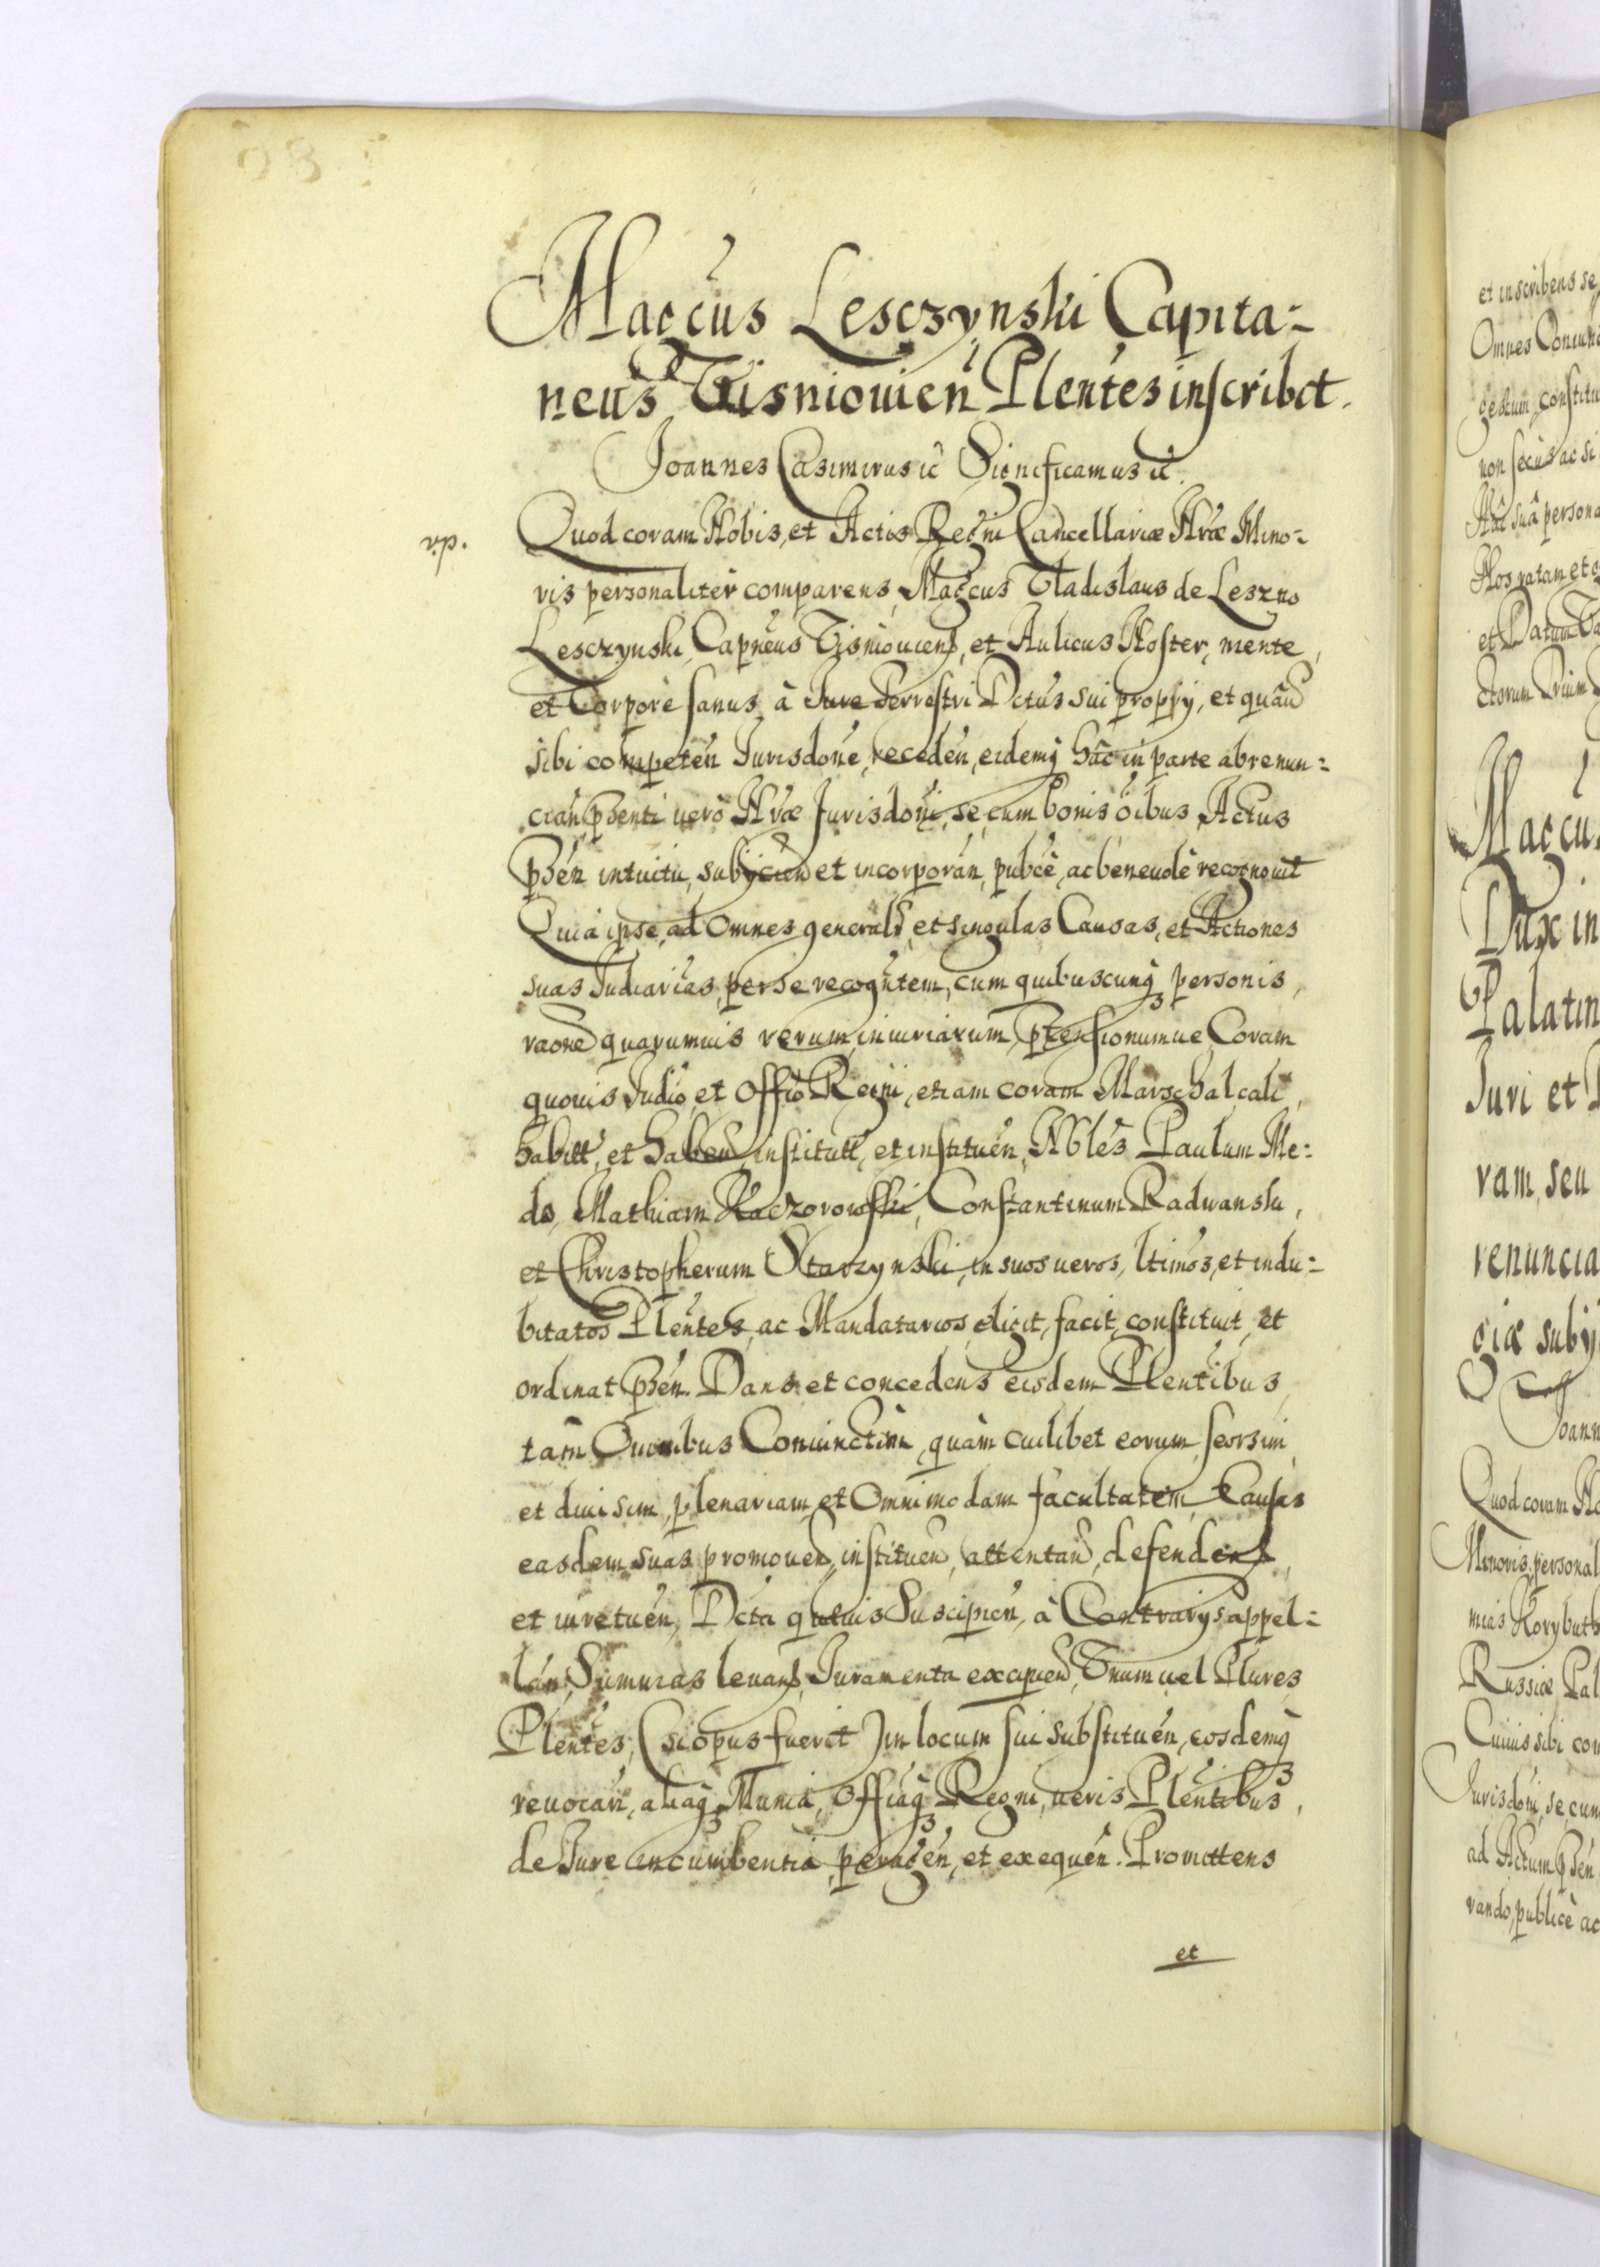 Magcus Lesczynski Capita=
neus Tisniouien Plentes inscribit.
Joannes Casimirus ic Significamus ic.
v.p.
Quod coram Nobis, et Actis Regni Cancellariæ Nræ Mino=
ris personaliter comparens, Magcus Vladislaus de Leszno
Lesczynski, Capneus Tisniouiens, et Aulicus Noster, mente,
et Corpore sanus, à Jure Terrestri Dctus sui proprij, et quãuis
sibi competen Jurisdone, receden, eidemq hãc in parte abrenun=
cian, pñsenti uerò Nræ Jurisdoni, se, cum bonis oibus, Actus
pñsen intuitu, subijcien et incorporan, pubce, ac beneuole recognouit
Quia ipse, ad Omnes generalr, et singulas Causas, et Actiones
suas Judiarias, per se recogntem, cum quibuscunq personis,
raone quarumuis rerum, iniuriarum, prtensionumue, Coram
quouis Judio, et Offio Regni, etiam coram Marschalcali,
habitt, et haben, institutt, et instituen, Nbles Paulum Me=
do, Mathiam Kaczorowski, Constantinum Radwanski,
et Christopherum Starzynski, in suos ueros, ltimos, et indu=
bitatos Plentes, ac Mandatarios eligit, facit, constituit, et
ordinat pñsen. Dans et concedens eisdem Plentibus,
tam Omnibus Coniunctim, quàm cuilibet eorum, seorsim,
et diuisim, plenariam, et Omnimodam facultatem, Causas
easdem suas promouen, instituen, attentan, defendens,
et in retuen, Dcta quæuis Suscipien, à Contrarijs appel=
lan, Sumuras leuans, Juramenta excipien, Vnum uel Plures
Plentes, (si opus fuerit) in locum sui substituen, eosdemq
reuocan, aliaq Munia, Offiaq Regni, ueris Plentibus,
de Jure incumbentia, peragen, et exequen. Promittens
et
et inscribens se
Omnes Coniunc
gestum, constitu
non secus ac si
sua persona
Nos ratam et
et Datum
Magcus
Dux in
Palatin
Juri et
ram, seu
renuncia
giæ subij
Joann
Quod coram No
Minoris, personal
mias Korybuth
Russiæ Pal
Cuiuis sibi com
Jurisdoni, se, cum
ad Actum pñsen
rando, publicè ac